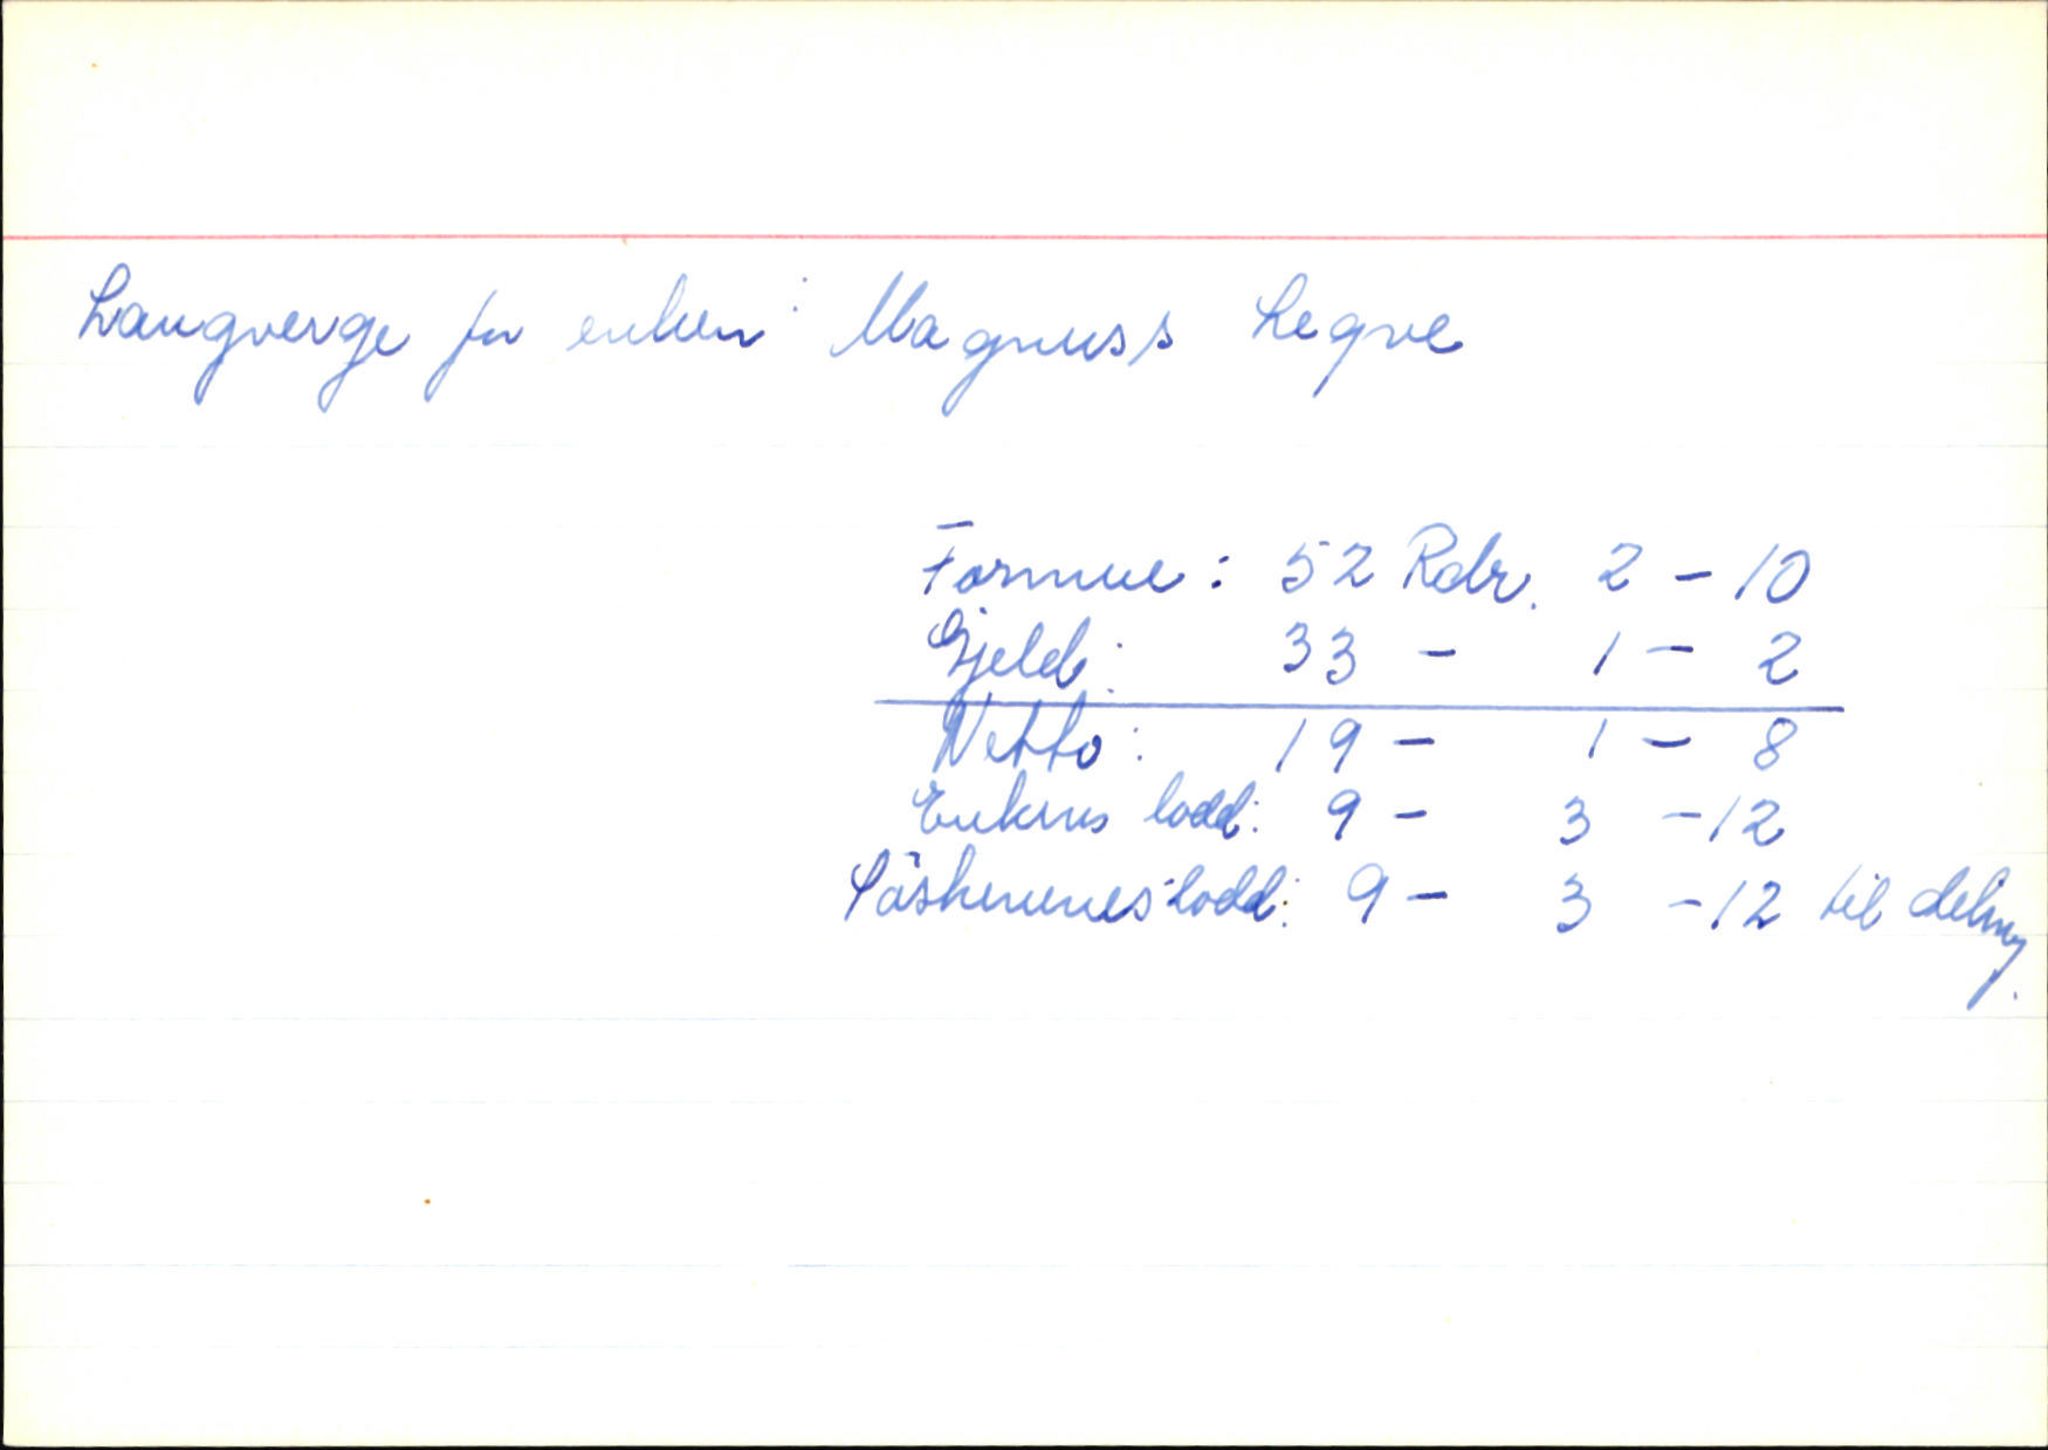 Laugverge for enken: Magnus s Legve
Formue: 52 Rdr. 2 - 10
Gjeld: 33 - 1 - 2
Netto: 19 - 1 - 8
Enkens lodd: 9 - 3 - 12
Söskenenes lodd: 9 - 3 - 12 til deling.